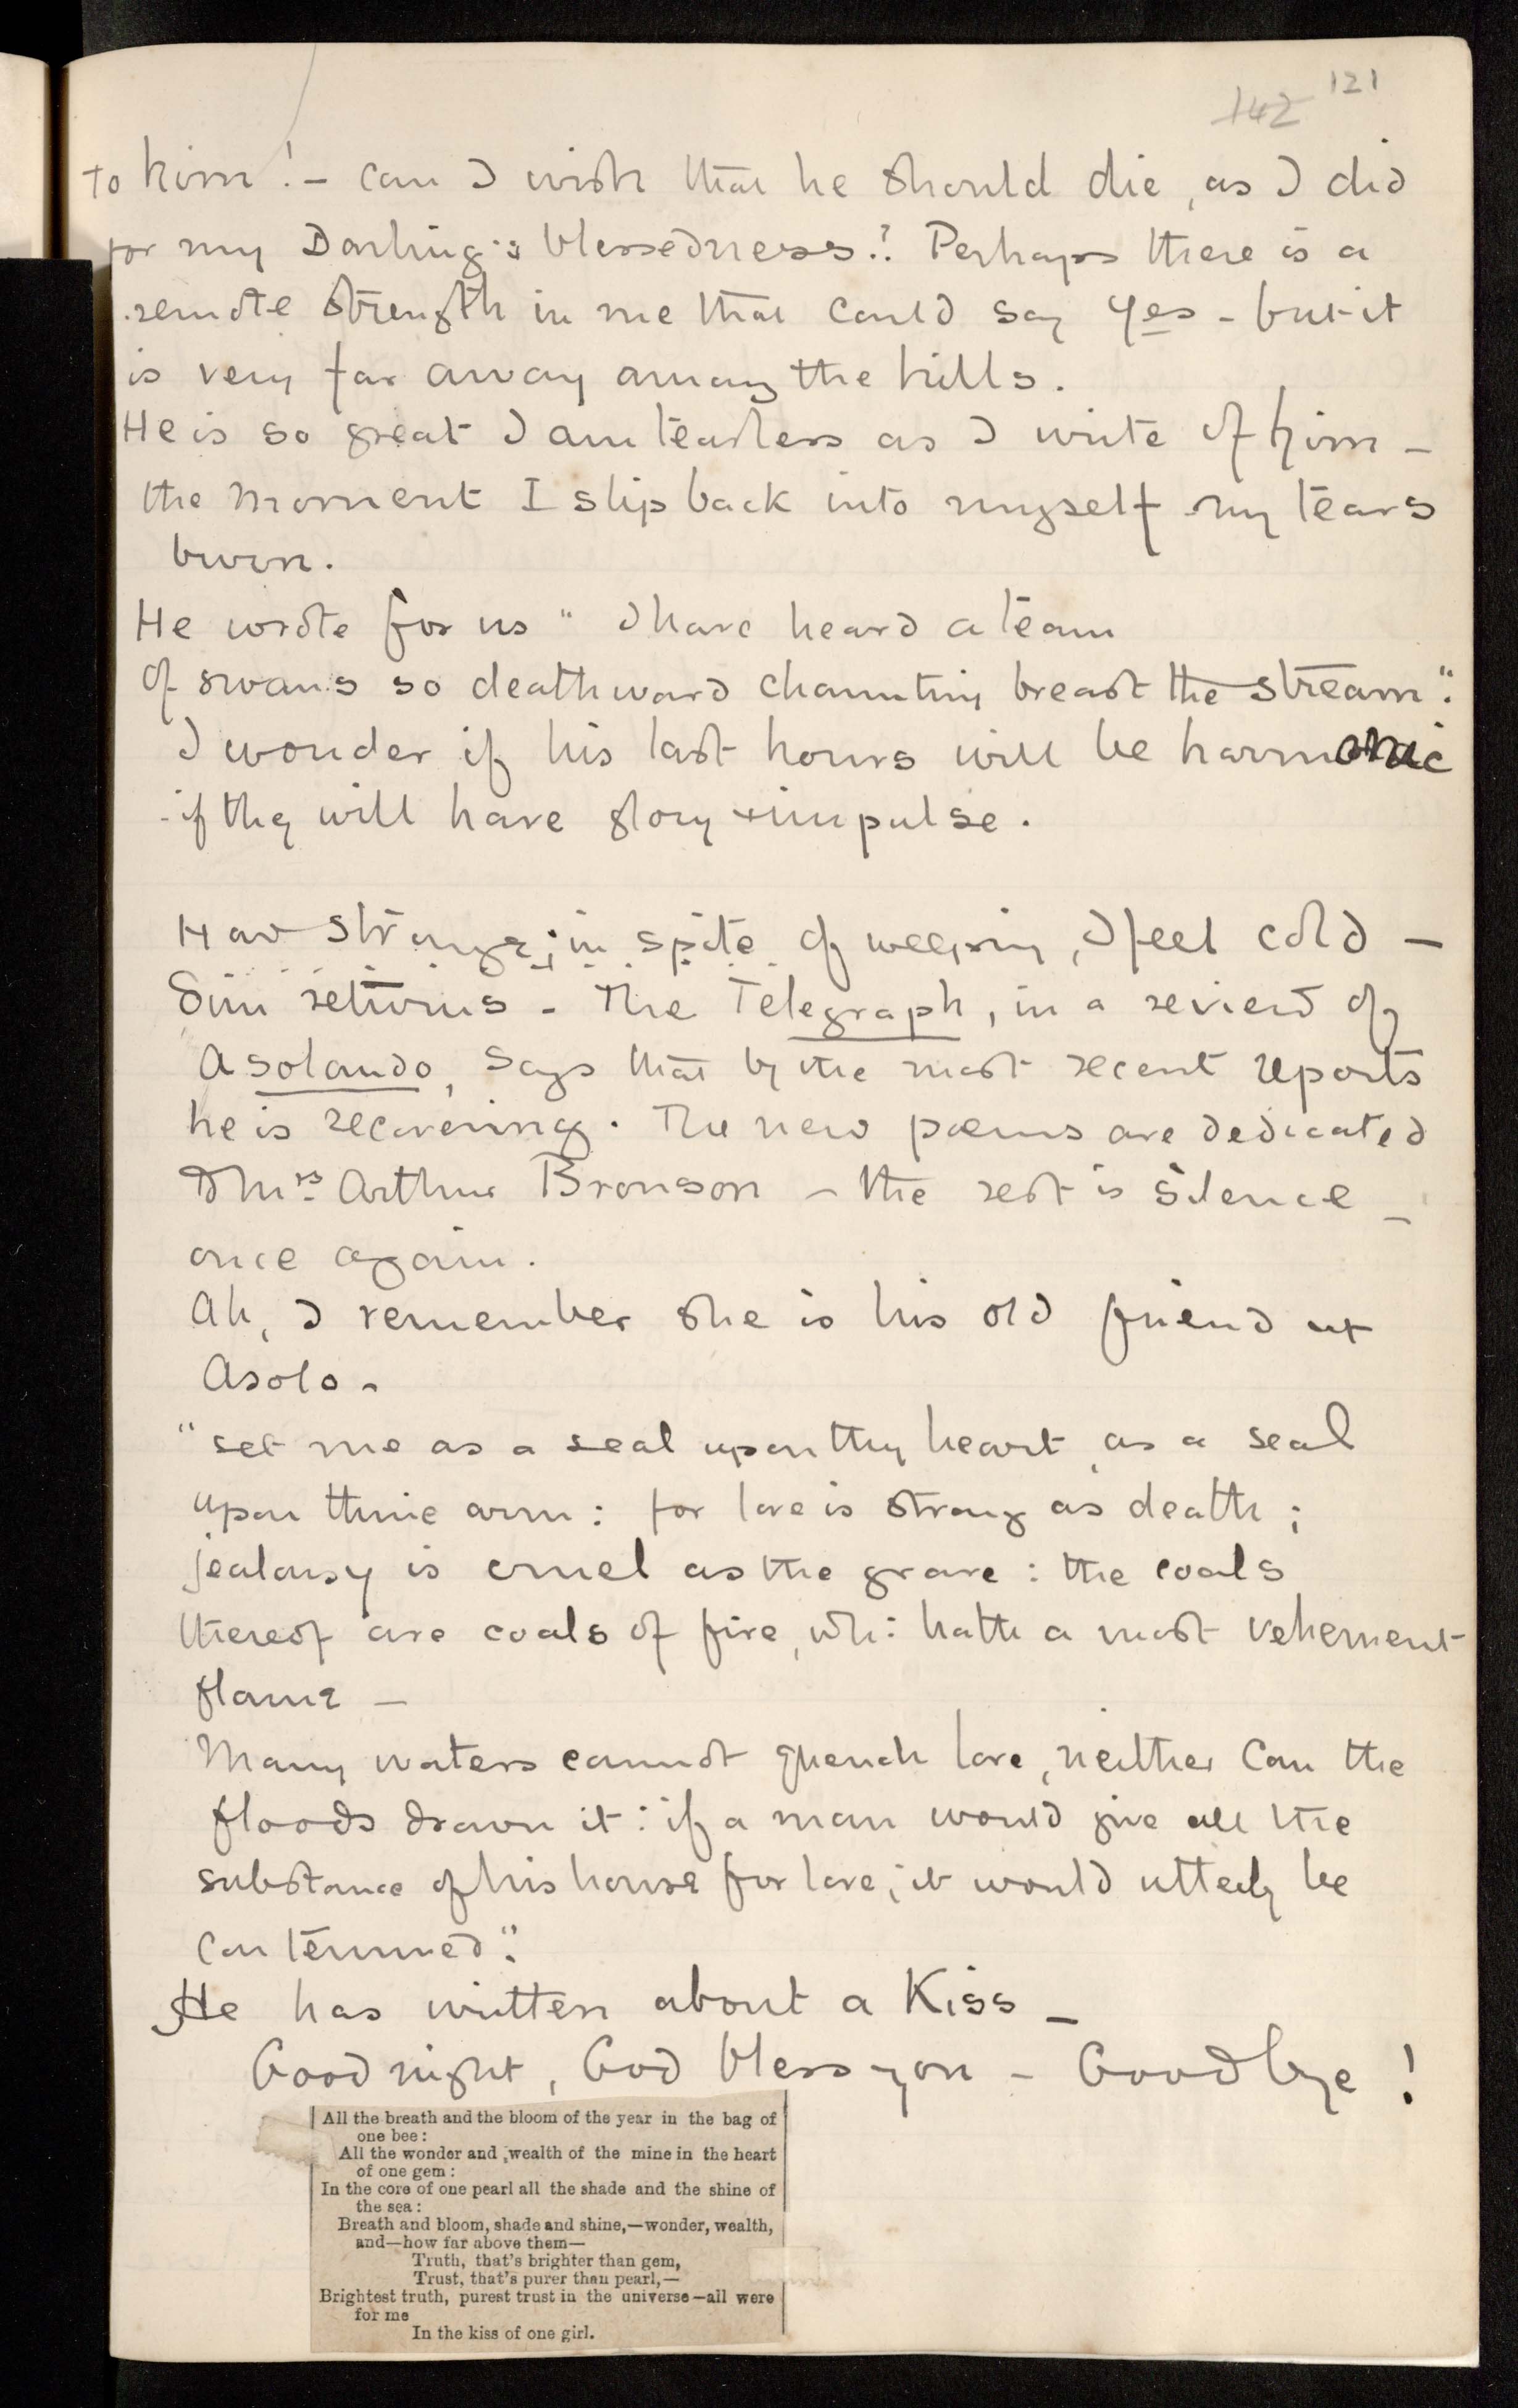 142 121
to him! – can I wish that he should die, as I did
for my Darling's blessedness.? Perhaps there is a
remote strength in me that could say yes – but it
is very far away among the hills.
He is so great I am tearless as I write of him –
the moment I slip back into myself my tears
burn.
He wrote for us " I have heard a team
of swans so deathward chaunting breast the stream".
I wonder if his last hours will be harmonic
– if they will have glory + impulse.
How strange; in spite of weeping, I feel cold –
Sim returns – The Telegraph, in a review of
Asolando, says that by the most recent reports
he is recovering. The new poems are dedicated
to Mrs Arthur Bronson – the rest is silence –
once again.
Ah, I remember she is his old friend at
Asolo –
"set me as a seal upon thy heart, as a seal
upon thine arm: for love is strong as death;
jealousy is cruel as the grave: the coals
thereof are coals of fire, wh: hath a most vehement
flame –
Many waters cannot quench love, neither can the
floods drown it: if a man would give all the
substance of his house for love, it would utterly be
contemned".
He has written about a Kiss –
Good night, God bless you – Goodbye!
All the breath and the bloom of the year in the bag of
one bee:
All the wonder and wealth of the mine in the heart
of one gem:
In the core of one pearl all the shade and the shine of
the sea:
Breath and bloom, shade and shine,—wonder, wealth,
and—how far above them—
Truth, that's brighter than gem,
Trust, that's purer than pearl,—
Brightest truth, purest trust in the universe—all were
for me
In the kiss of one girl.